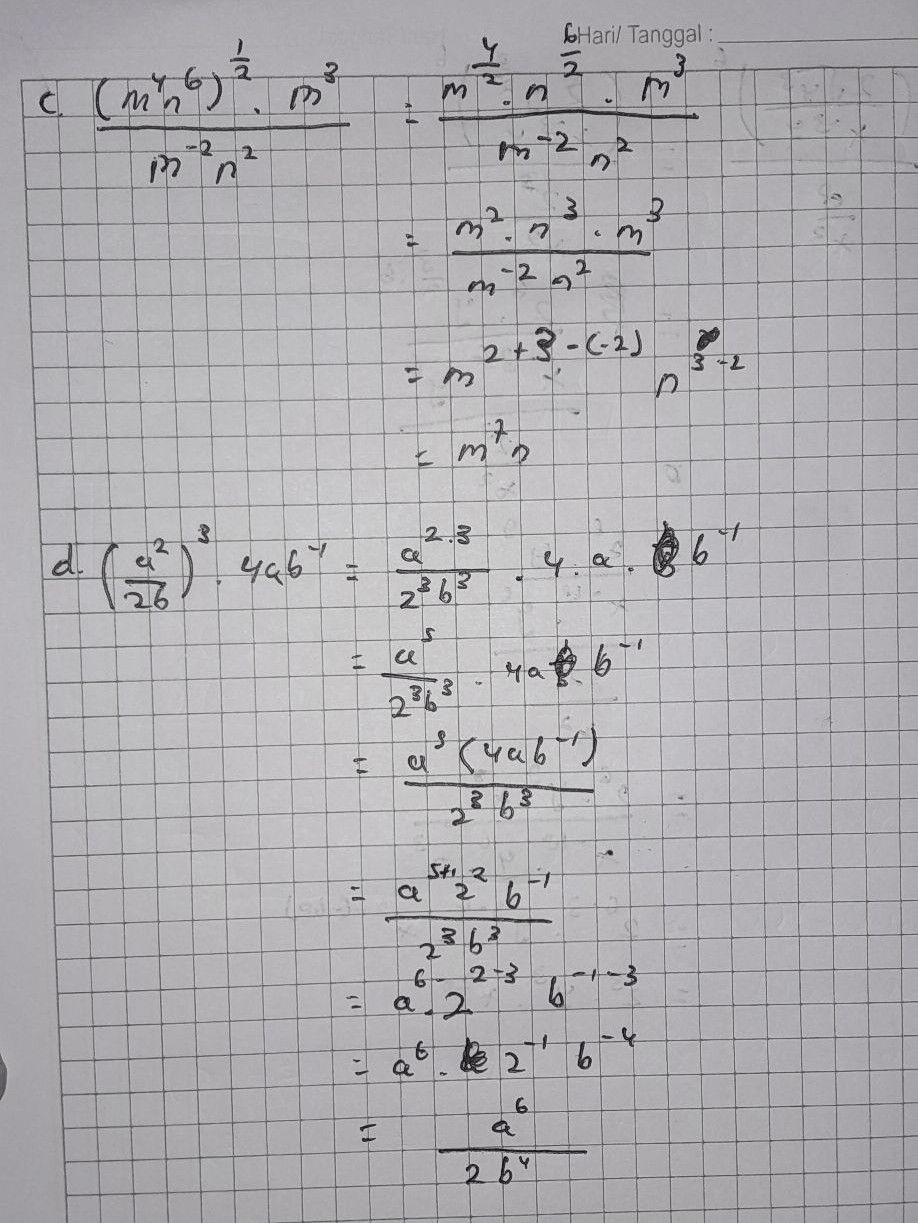 Hari/ Tanggal :
c. \frac{(m^4 n^6)^{\frac{1}{2}} \cdot m^3}{m^{-2} n^2} = \frac{m^{\frac{4}{2}} \cdot n^{\frac{6}{2}} \cdot m^3}{m^{-2} n^2}
= \frac{m^2 \cdot n^3 \cdot m^3}{m^{-2} n^2}
= m^{2+3-(-2)} n^{3-2}
= m^7 n
d. (\frac{a^2}{2b})^3 \cdot 4ab^{-1} = \frac{a^{2 \cdot 3}}{2^3 b^3} \cdot 4 \cdot a \cdot b^{-1}
= \frac{a^5}{2^3 b^3} \cdot 4a b^{-1}
= \frac{a^5 (4ab^{-1})}{2^3 b^3}
= \frac{a^{5+1} 2^2 b^{-1}}{2^3 b^3}
= a^6 \cdot 2^{2-3} b^{-1-3}
= a^6 \cdot 2^{-1} b^{-4}
= \frac{a^6}{2 b^4}